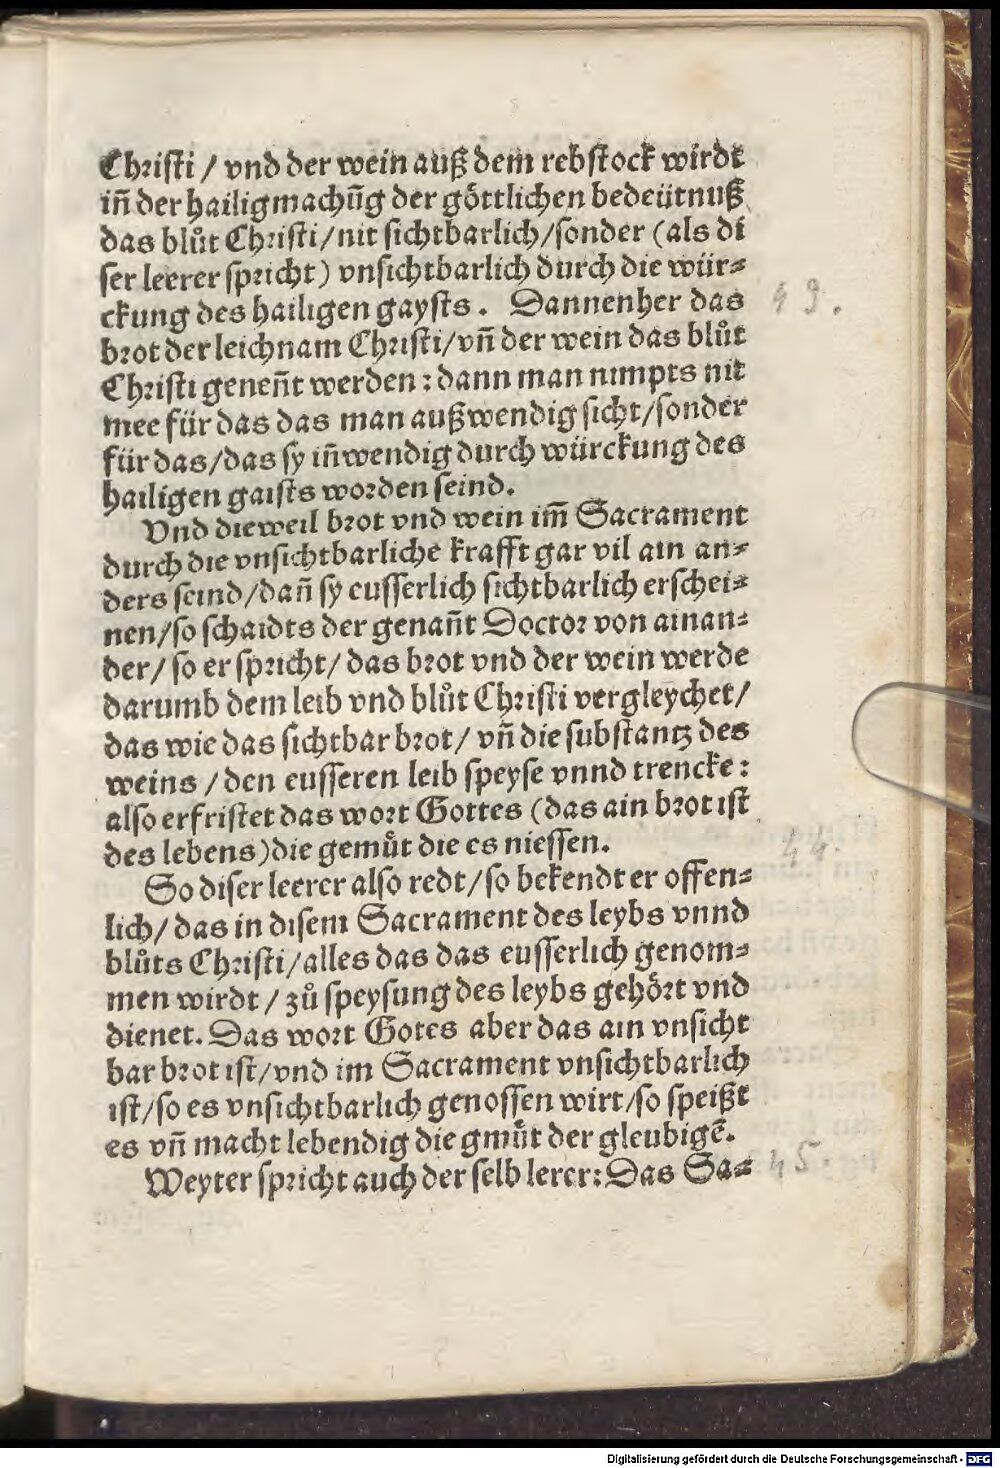 Christi / vnd der wein auß dem rebstock wirdt
iñ der hailigmachũg der göttlichen bedeütnuß
das blůt Christi/nit sichtbarlich/sonder (als di
ser leerer spricht) vnsichtbarlich durch die wür⸗
ckung des hailigen gaysts. Dannenher das
brot der leichnam Christi/vñ der wein das blůt
Christi geneñt werden : dann man nimpts nit
mee für das das man außwendig sicht/sonder
für das/das sy iñwendig durch würckung des
hailigen gaists worden seind.
Vnd dieweil brot vnd wein im̃ Sacrament
durch die vnsichtbarliche krafft gar vil ain an⸗
ders seind/dañ sy eusserlich sichtbarlich erschei⸗
nen/so schaidts der genañt Doctor von ainan⸗
der/ so er spricht/ das brot vnd der wein werde
darumb dem leib vnd blůt Christi vergleychet/
das wie das sichtbar brot/ vñ die substantz des
weins / den eusseren leib speyse vnnd trencke :
also erfristet das wort Gottes (das ain brot ist
des lebens) die gemůt die es niessen.
So diser leerer also redt/so bekendt er offen⸗
lich/ das in disem Sacrament des leybs vnnd
blůts Christi/alles das das eusserlich genom⸗
men wirdt / zů speysung des leybs gehört vnd
dienet. Das wort Gotes aber das ain vnsicht
bar brot ist/vnd im Sacrament vnsichtbarlich
ist/so es vnsichtbarlich genossen wirt/so speißt
es vñ macht lebendig die gmůt der gleubigẽ.
Weyter spricht auch der selb lerer: Das Sa⸗
44.
45.
Digitalisierung gefördert durch die Deutsche Forschungsgemeinschaft - DFG